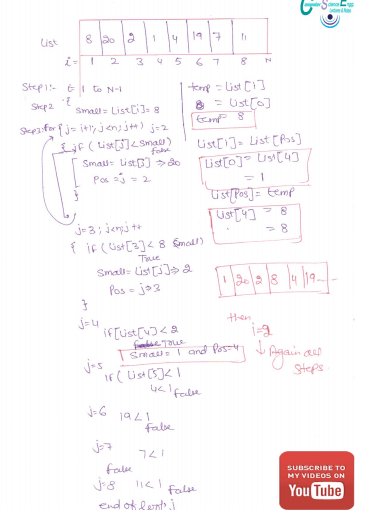 Computer Science Engg
Lectures & Notes
List 8 20 2 1 4 19 7 11
i= 1 2 3 4 5 6 7 8 N
Step1:- 1 to N-1
Step2 {
Small = List[i] = 8
Step3: for (j=i+1; j<n; j++) j=2
{ if (List[j] < Small)
false
Small = List[j] ⇒ 20
Pos = j = 2
}
j=3; j<n; j++
{ if (List[3] < 8 Small)
True
Small = List[j] ⇒ 2
Pos = j ⇒ 3
}
j=4
if [List[4] < 2
True
Small = 1 and Pos=4
j=5
if (List[5] < 1
4<1 false
j=6 19<1
false
j=7
7<1
false
j=8 11<1 false
end of loop j
temp = List[i]
8 = List[0]
temp 8
List[i] = List[Pos]
List[0] = List[4]
= 1
List[Pos] = temp
List[4] = 8
= 8
1 20 2 8 4 19
then
i=2
↓ Again all
Steps
SUBSCRIBE TO
MY VIDEOS ON
YouTube